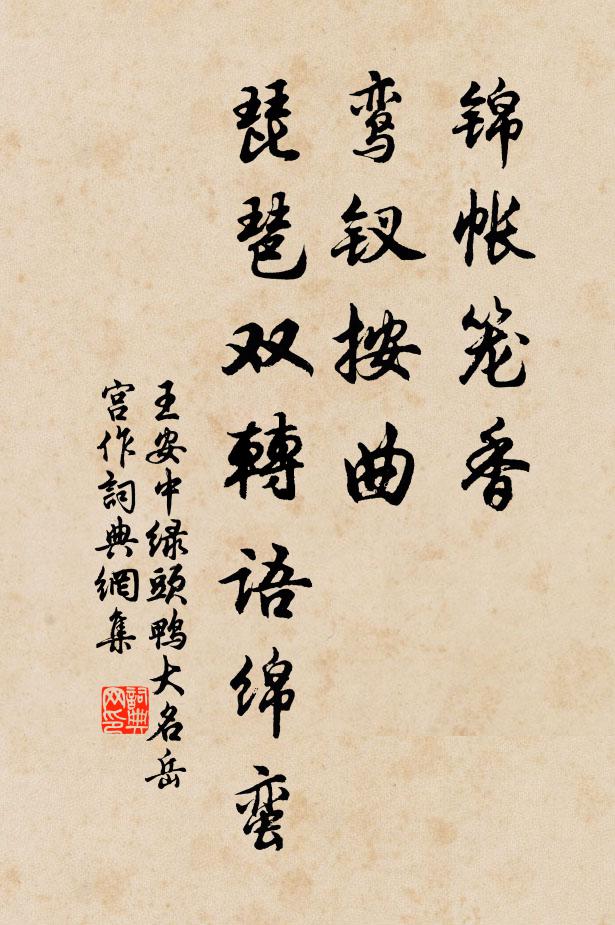 锦帐笼香
鸾钗按曲
琵琶双轉语绵蛮
王安中绿頭鸭大名岳
宫作詞典網集
詞典网印